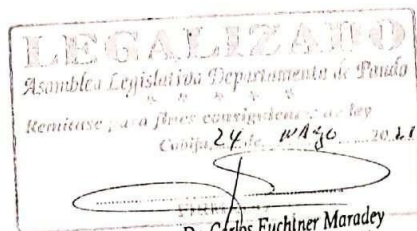 LEGALIZADO
Asamblea Legislativa Departamento de Pando
Remitase para fines consiguientes de ley
Cobija, 24 de Mayo 20 21
FIRMA
Dr. Carlos Fuchtner Maradey